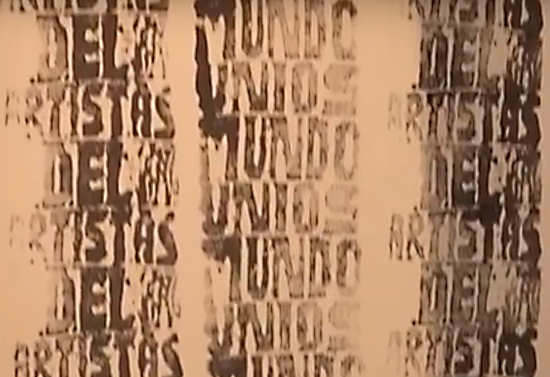 ARTISTAS
DEL
ARTISTAS
DEL
ARTISTAS
DEL
ARTISTAS
MUNDO
UNIOS
MUNDO
UNIOS
MUNDO
UNIOS
MUNDO
ARTISTAS
DEL
ARTISTAS
DEL
ARTISTAS
DEL
ARTISTAS